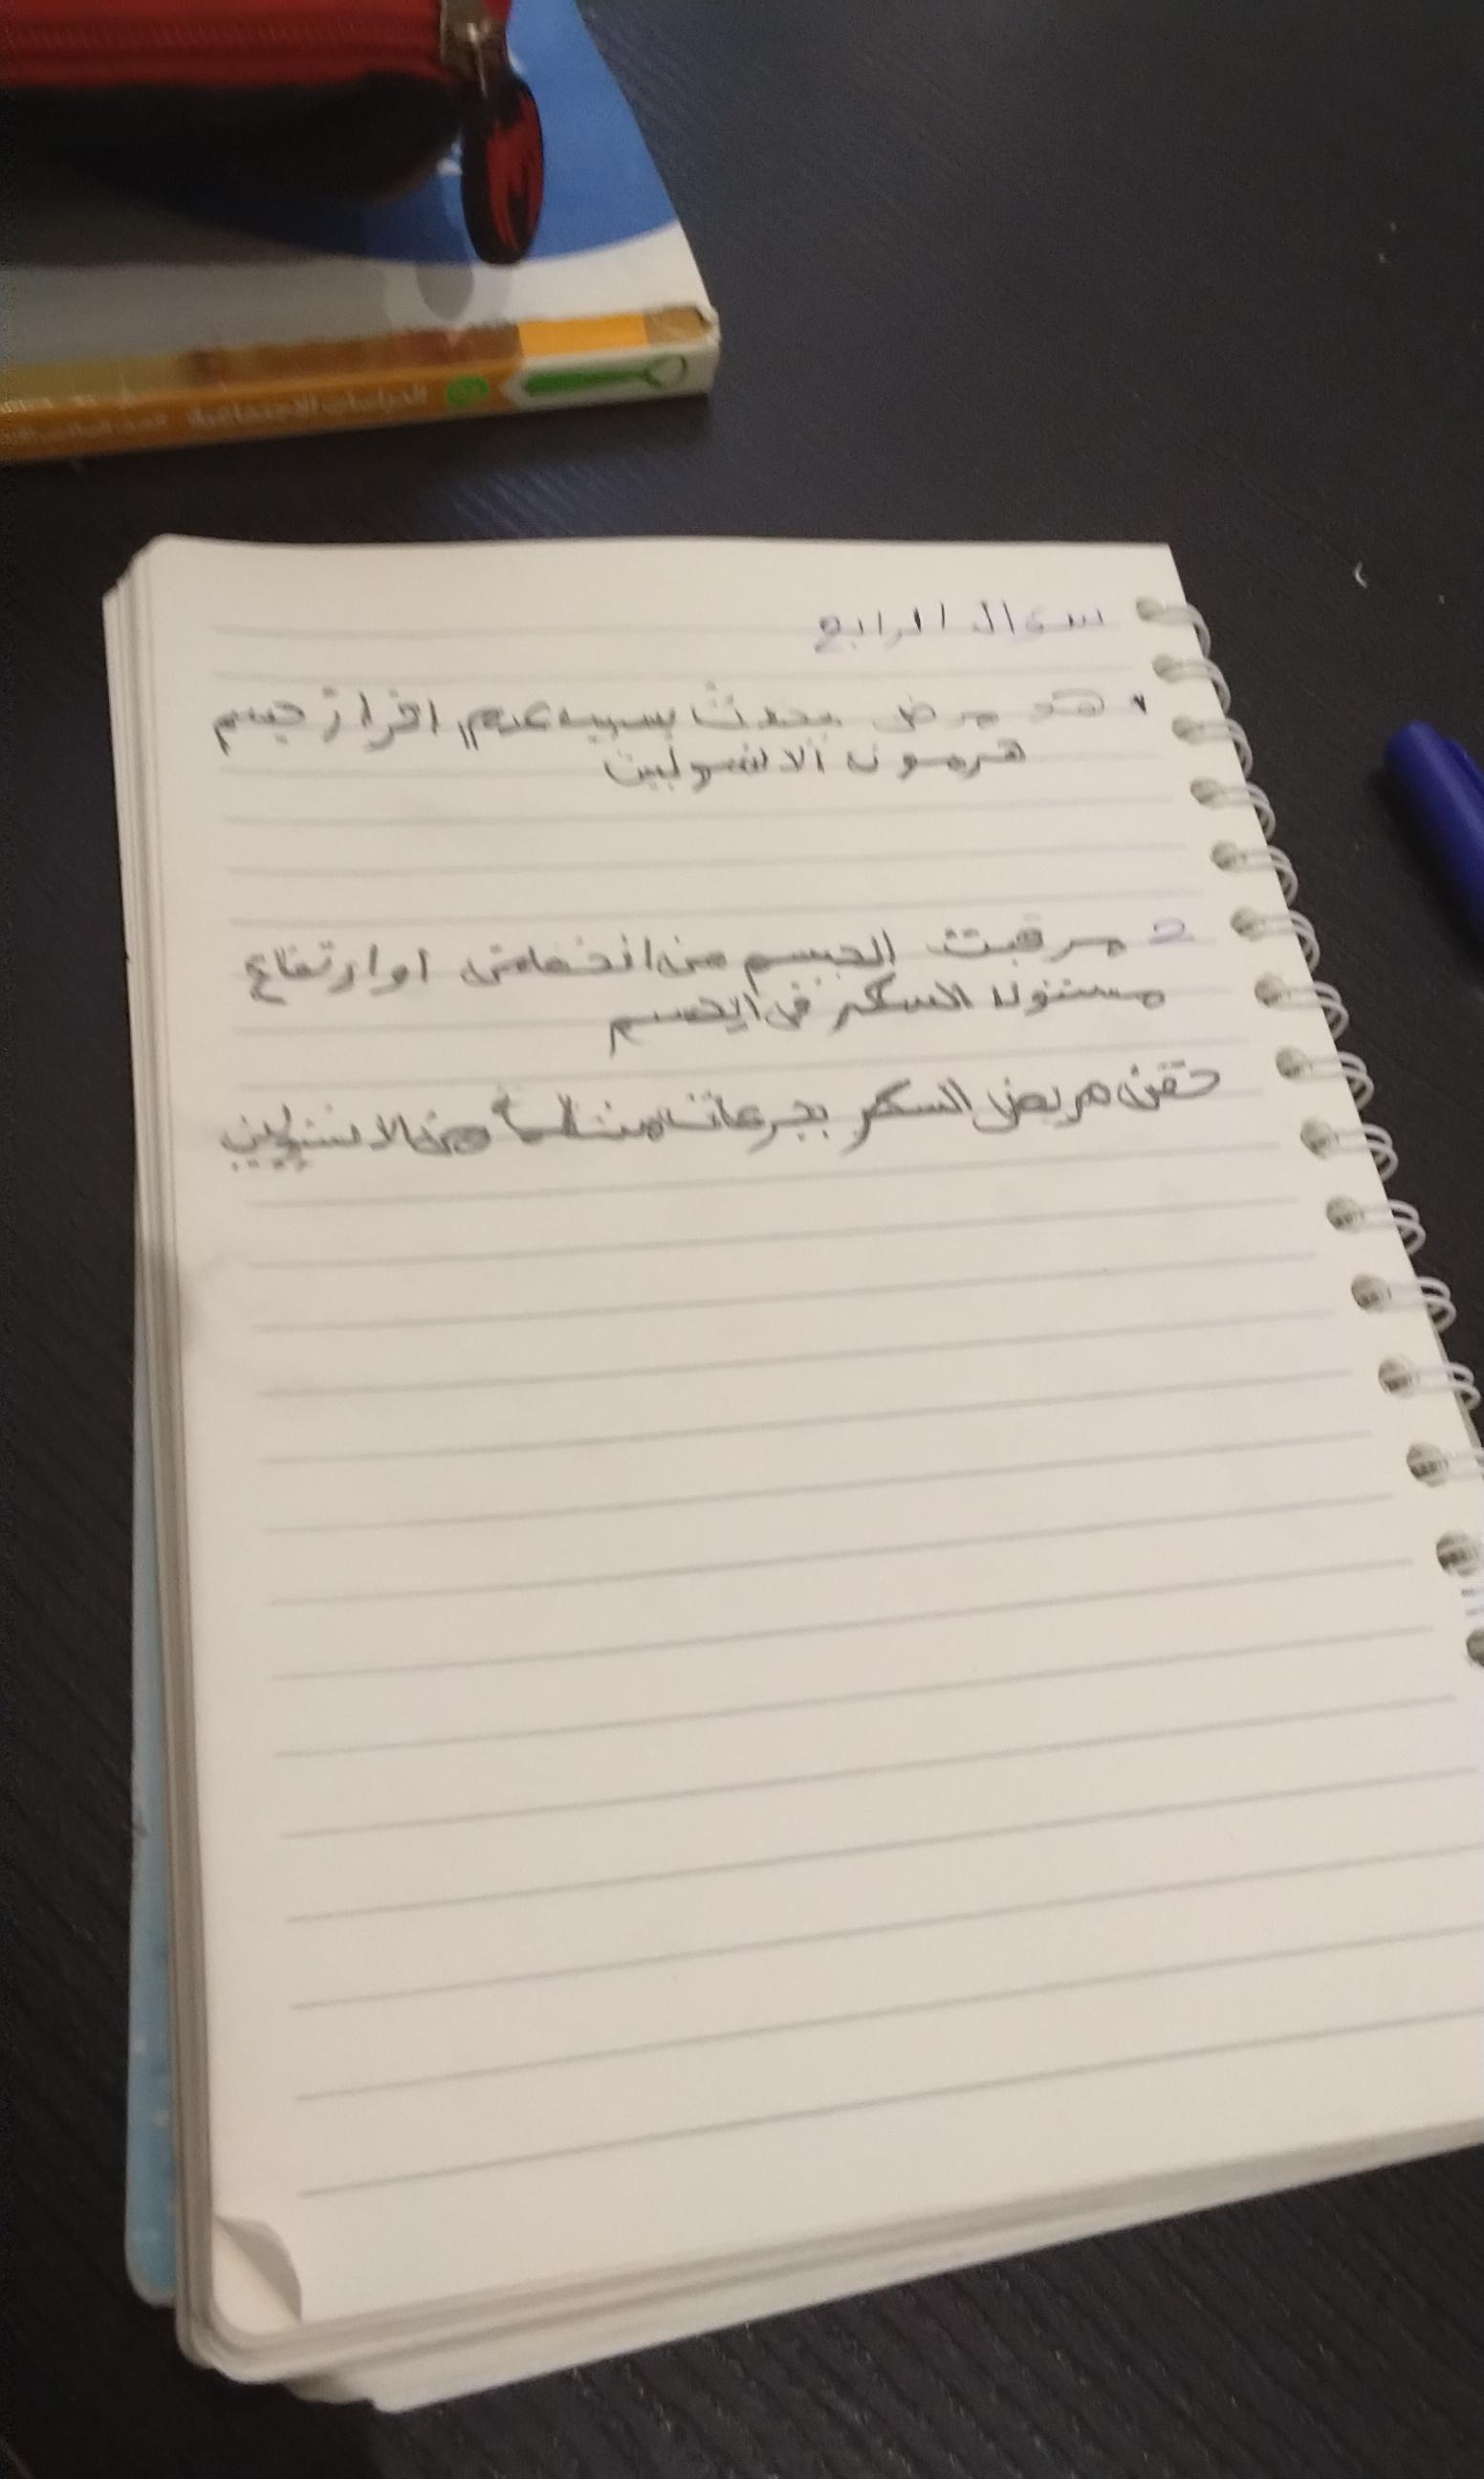 الدراسات الاجتماعية
6
سؤال الرابع
١ هو مرض يحدث بسبب عدم افراز جسم
هرمون الانسولين
2 مرقبت الجسم من انخفاض او ارتفاع
مستوى السكر في الجسم
حقن مريض السكر بجرعات مناسبة من الانسولين